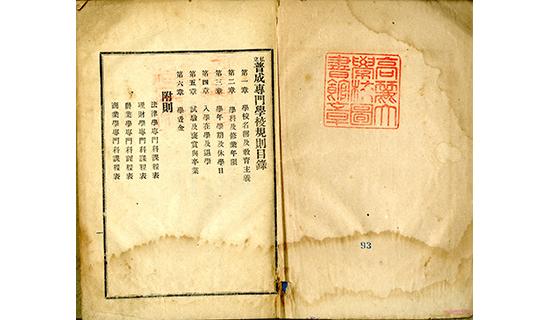 高麗大
學校圖
書館章
93
私立普成專門學校規則目錄
第一章 學校名稱及教育主義
第二章 學科及修業年限
第三章 學年學期及休學日
第四章 入學在學及退學
第五章 試驗及褒賞與卒業
第六章 學費金
附則
法律學專門科課程表
理財學專門科課程表
農業學專門科課程表
商業學專門科課程表